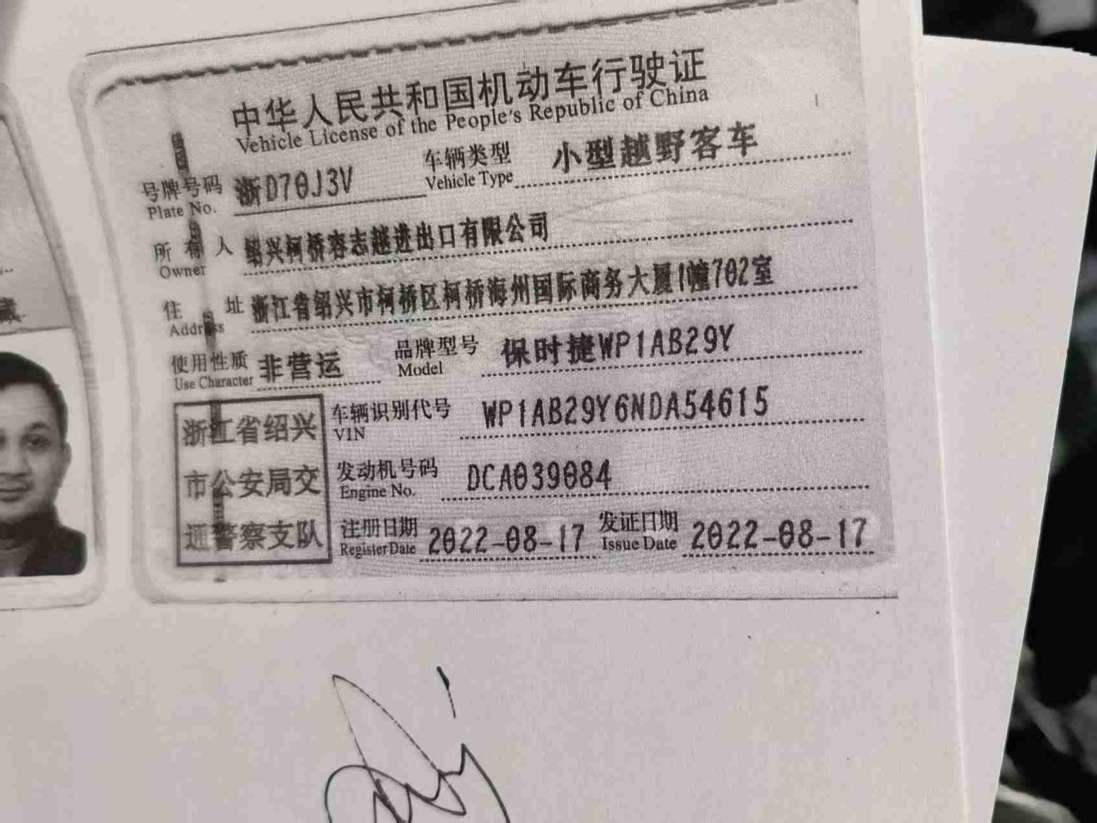 中华人民共和国机动车行驶证
Vehicle License of the People's Republic of China
号牌号码 浙D70J3V 车辆类型 小型越野客车
Plate No. Vehicle Type
所有人 绍兴柯桥容志越进出口有限公司
Owner
住址 浙江省绍兴市柯桥区柯桥海州国际商务大厦1幢702室
Address
使用性质 非营运 品牌型号 保时捷WP1AB29Y
Use Character Model
浙江省绍兴
市公安局交
通警察支队
车辆识别代号 WP1AB29Y6NDA54615
VIN
发动机号码 DCA039084
Engine No.
注册日期 2022-08-17 发证日期 2022-08-17
Register Date Issue Date